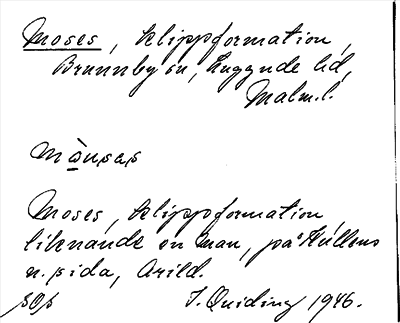 Moses, klippformation,
Brunnby sn, Luggude hd,
Malm.l.
mò̱usəs
Moses, klippformation
liknande en man, på Kullens
n. sida, Arild.
sOs J. Quiding 1946.